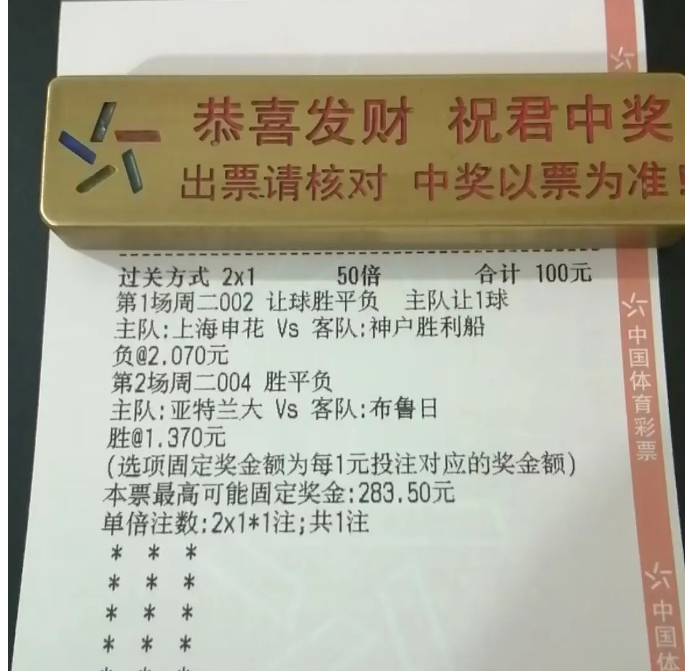 恭喜发财 祝君中奖
出票请核对 中奖以票为准!
过关方式 2x1 50倍 合计 100元
第1场周二002 让球胜平负 主队让1球
主队:上海申花 Vs 客队:神户胜利船
负@2.070元
第2场周二004 胜平负
主队:亚特兰大 Vs 客队:布鲁日
胜@1.370元
(选项固定奖金额为每1元投注对应的奖金额)
本票最高可能固定奖金:283.50元
单倍注数:2x1*1注;共1注
* * *
* * *
* * *
* * *
* * *
中国体育彩票
中国体